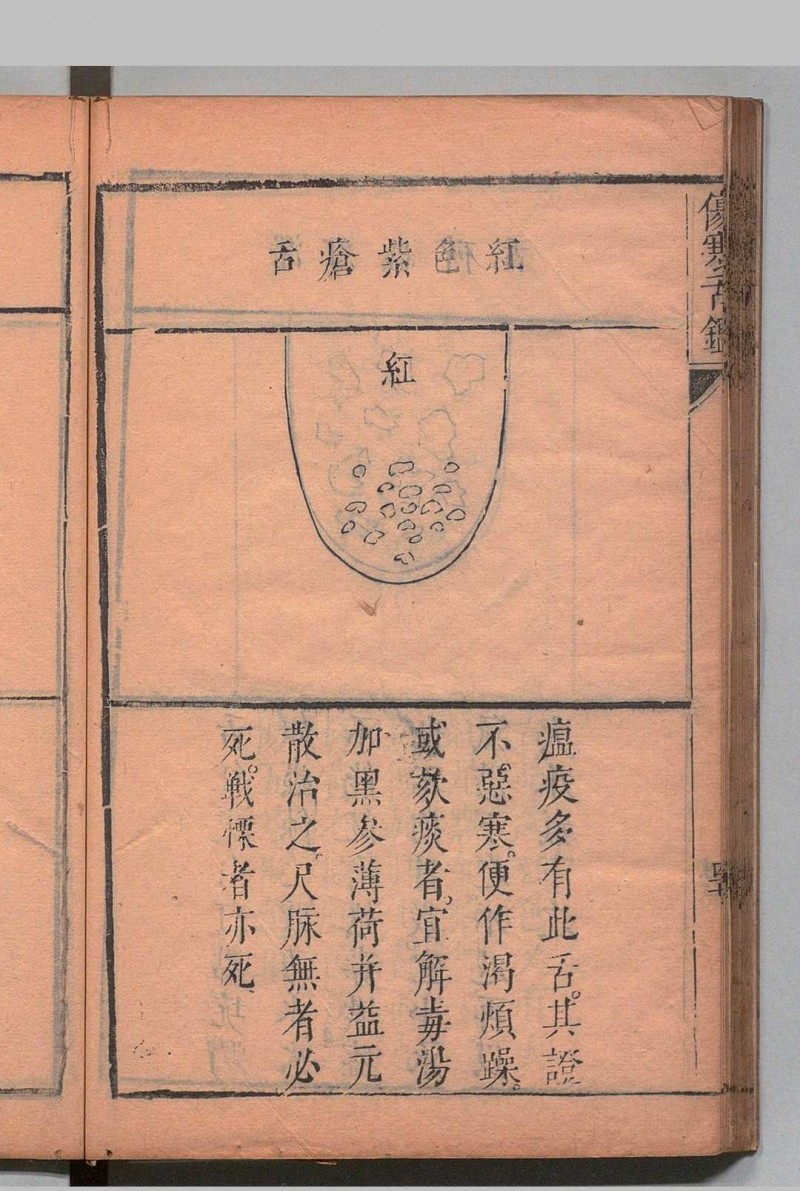 傷寒舌鑑
紅色紫瘡舌
紅
瘟疫多有此舌。其證
不。惡寒。便作渴煩躁。
或欬痰者、宜解毒湯
加黑参薄荷并益元
散治之。尺脉無者必
死。戰慄者亦死